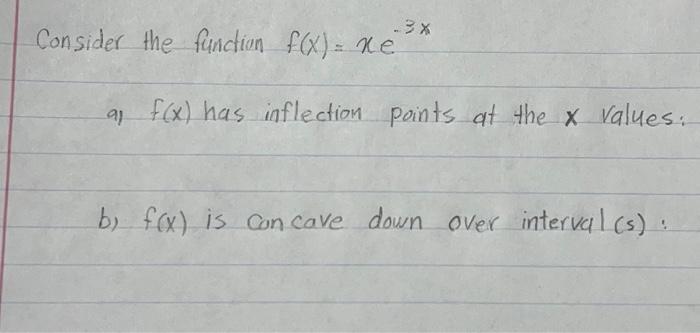 Consider the function f(x) = xe^-3x
a) f(x) has inflection points at the x values:
b) f(x) is concave down over interval(s) :